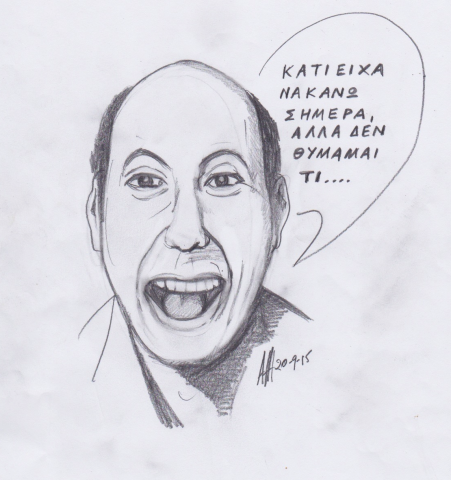 ΚΑΤΙ ΕΙΧΑ
ΝΑ ΚΑΝΩ
ΣΗΜΕΡΑ,
ΑΛΛΑ ΔΕΝ
ΘΥΜΑΜΑΙ
ΤΙ....
20-9-15